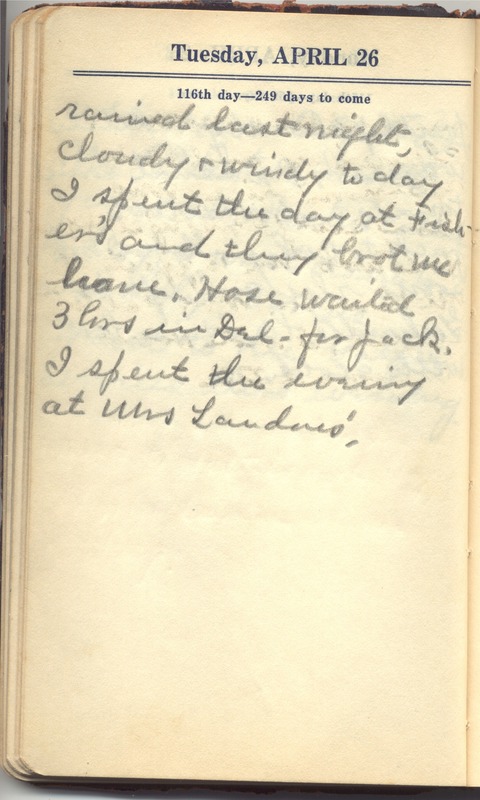 Tuesday, APRIL 26
116th day—249 days to come
rained last night,
cloudy & windy today
I spent the day at Fish-
er's and they brot me
home. Hose waited
3 hrs in Del. for Jack.
I spent the evening
at Mrs Landres'.